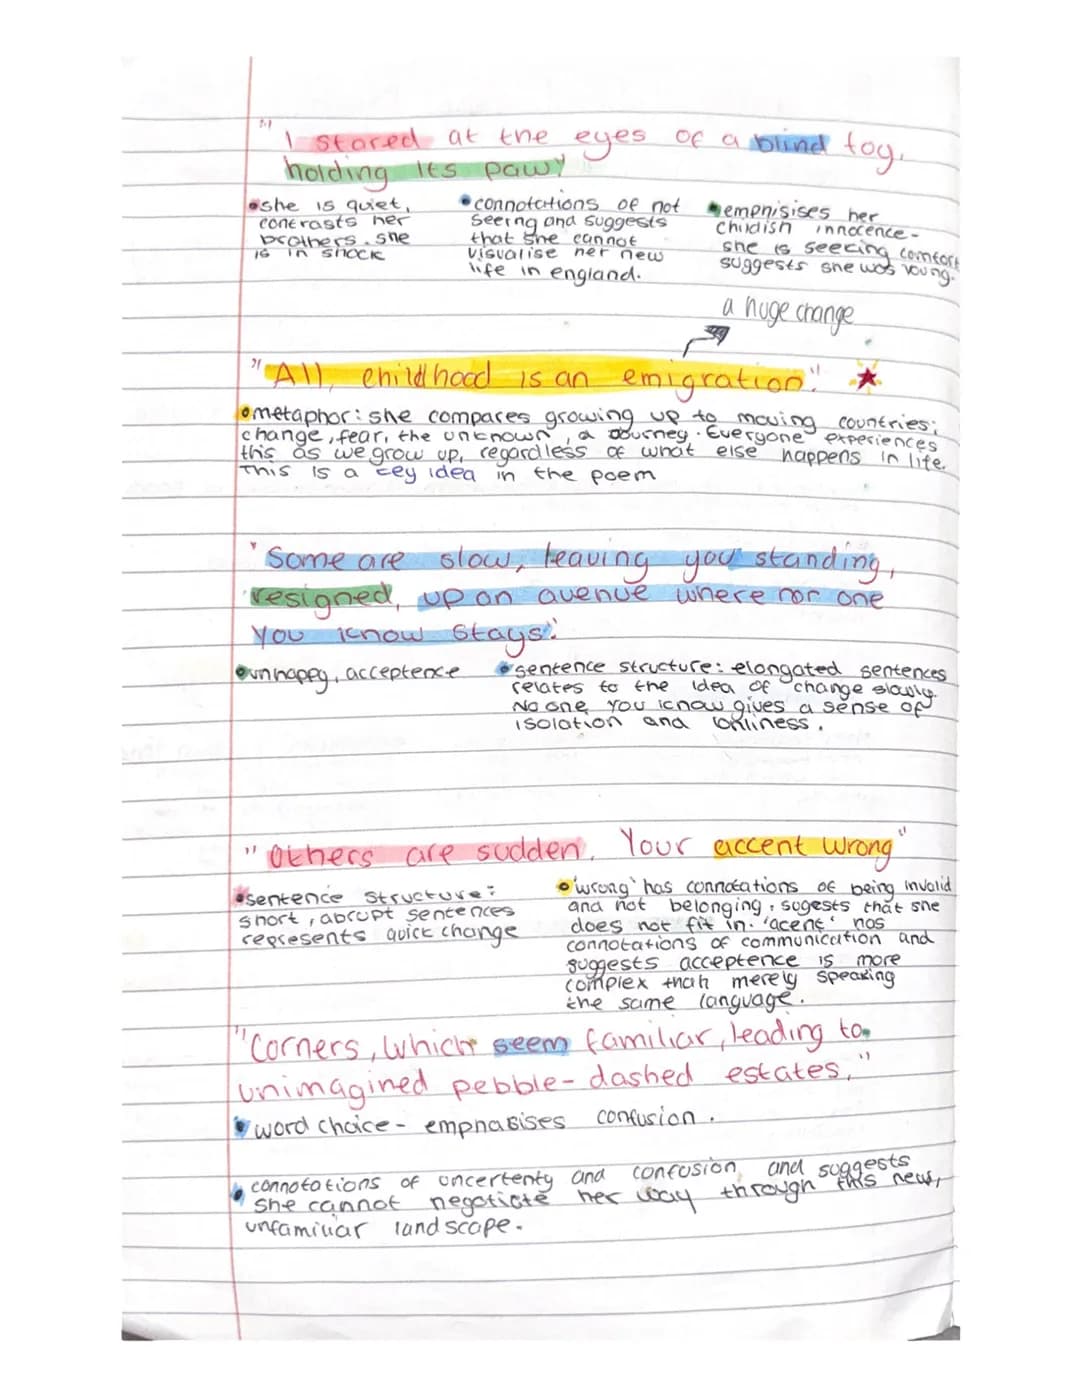 "I stared at the eyes of a blind toy,
holding its paw"
•she is quiet,
contrasts her
brothers. she
is in shock
•connotations of not
seeing and suggests
that she cannot
visualise her new
life in england.
•emphisises her
childish innocence-
she is seeking comfort
suggests she was young.
a huge change
"All, childhood is an emigration."
•metaphor: she compares growing up to moving countries;
change, fear, the unknown, a journey. Everyone experiences
this as we grow up, regardless of what else happens in life.
This is a key idea in the poem
"Some are slow, leaving you standing,
resigned, up an avenue where nor one
you know stays."
•unhappy, acceptence
•sentence structure: elongated sentences
relates to the idea of change slowly.
No one you know gives a sense of
isolation and lonliness.
"Others are sudden. Your accent wrong"
•sentence structure:
short, abrupt sentences
represents quick change
•'wrong' has connotations of being invalid
and not belonging, sugests that she
does not fit in. 'acent' has
connotations of communication and
suggests acceptence is more
complex than merely speaking
the same language.
"Corners, which seem familiar, leading to
unimagined pebble-dashed estates."
•word choice - emphasises confusion.
•connotations of uncertenty and confusion and suggests
she cannot negotiate her way through this new,
unfamiliar landscape.